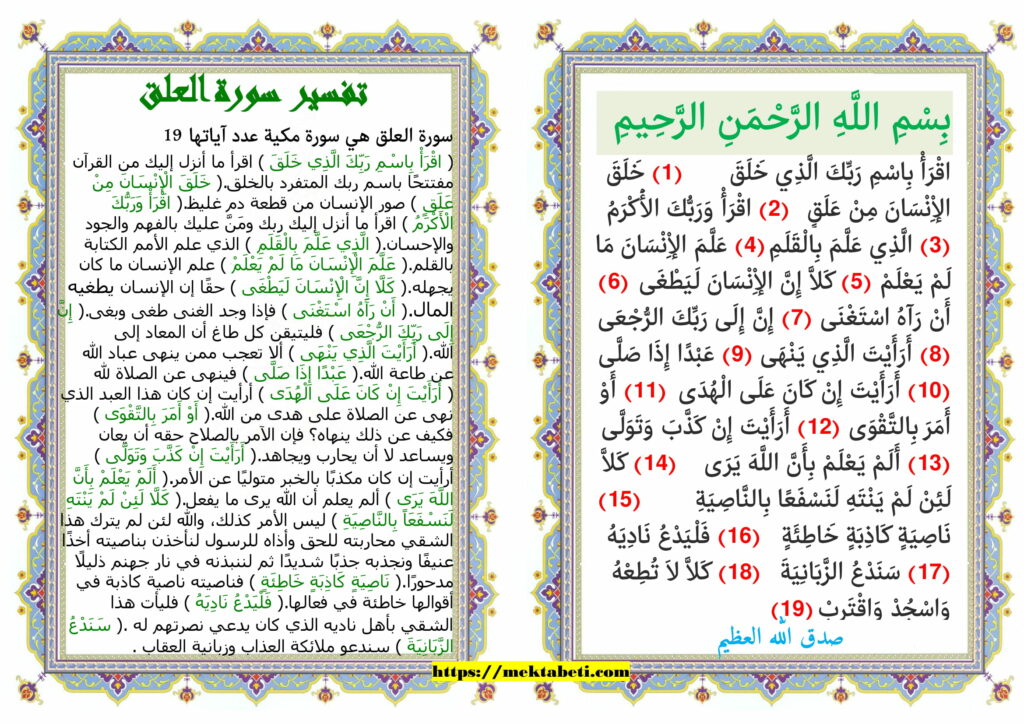 بِسْمِ اللَّهِ الرَّحْمَنِ الرَّحِيمِ
اقْرَأْ بِاسْمِ رَبِّكَ الَّذِي خَلَقَ (1) خَلَقَ
الإِنْسَانَ مِنْ عَلَقٍ (2) اقْرَأْ وَرَبُّكَ الأَكْرَمُ
(3) الَّذِي عَلَّمَ بِالْقَلَمِ (4) عَلَّمَ الإِنْسَانَ مَا
لَمْ يَعْلَمْ (5) كَلاَّ إِنَّ الإِنْسَانَ لَيَطْغَى (6)
أَنْ رَآهُ اسْتَغْنَى (7) إِنَّ إِلَى رَبِّكَ الرُّجْعَى
(8) أَرَأَيْتَ الَّذِي يَنْهَى (9) عَبْدًا إِذَا صَلَّى
(10) أَرَأَيْتَ إِنْ كَانَ عَلَى الْهُدَى (11) أَوْ
أَمَرَ بِالتَّقْوَى (12) أَرَأَيْتَ إِنْ كَذَّبَ وَتَوَلَّى
(13) أَلَمْ يَعْلَمْ بِأَنَّ اللَّهَ يَرَى (14) كَلاَّ
لَئِنْ لَمْ يَنْتَهِ لَنَسْفَعًا بِالنَّاصِيَةِ (15)
نَاصِيَةٍ كَاذِبَةٍ خَاطِئَةٍ (16) فَلْيَدْعُ نَادِيَهُ
(17) سَنَدْعُ الزَّبَانِيَةَ (18) كَلاَّ لاَ تُطِعْهُ
وَاسْجُدْ وَاقْتَرِبْ (19)
صدق الله العظيم
تفسير سورة العلق
سورة العلق هي سورة مكية عدد آياتها 19
( اقْرَأْ بِاسْمِ رَبِّكَ الَّذِي خَلَقَ ) اقرأ ما أنزل إليك من القرآن
مفتتحًا باسم ربك المتفرد بالخلق.( خَلَقَ الْإِنْسَانَ مِنْ
عَلَقٍ ) صور الإنسان من قطعة دم غليظ.( اقْرَأْ وَرَبُّكَ
الْأَكْرَمُ ) اقرأ ما أنزل إليك ربك ومَنَّ عليك بالفهم والجود
والإحسان.( الَّذِي عَلَّمَ بِالْقَلَمِ ) الذي علم الأمم الكتابة
بالقلم.( عَلَّمَ الْإِنْسَانَ مَا لَمْ يَعْلَمْ ) علم الإنسان ما كان
يجهله.( كَلَّا إِنَّ الْإِنْسَانَ لَيَطْغَى ) حقًا إن الإنسان يطغيه
المال.( أَنْ رَآهُ اسْتَغْنَى ) فإذا وجد الغنى طغى وبغى.( إِنَّ
إِلَى رَبِّكَ الرُّجْعَى ) فليتيقن كل طاغ أن المعاد إلى
الله.( أَرَأَيْتَ الَّذِي يَنْهَى ) ألا تعجب ممن ينهى عباد الله
عن طاعة الله.( عَبْدًا إِذَا صَلَّى ) فينهى عن الصلاة لله
( أَرَأَيْتَ إِنْ كَانَ عَلَى الْهُدَى ) أرأيت إن كان هذا العبد الذي
نهى عن الصلاة على هدى من الله.( أَوْ أَمَرَ بِالتَّقْوَى )
فكيف عن ذلك ينهاه؟ فإن الآمر بالصلاح حقه أن يعان
ويساعد لا أن يحارب ويجاهد.( أَرَأَيْتَ إِنْ كَذَّبَ وَتَوَلَّى )
أرأيت إن كان مكذبًا بالخبر متوليًا عن الأمر.( أَلَمْ يَعْلَمْ بِأَنَّ
اللَّهَ يَرَى ) ألم يعلم أن الله يرى ما يفعل.( كَلَّا لَئِنْ لَمْ يَنْتَهِ
لَنَسْفَعَاً بِالنَّاصِيَةِ ) ليس الأمر كذلك، والله لئن لم يترك هذا
الشقي محاربته للحق وأذاه للرسول لنأخذن بناصيته أخذًا
عنيفًا ونجذبه جذبًا شديدًا ثم لننبذنه في نار جهنم ذليلًا
مدحورًا.( نَاصِيَةٍ كَاذِبَةٍ خَاطِئَةٍ ) فناصيته ناصية كاذبة في
أقوالها خاطئة في فعالها.( فَلْيَدْعُ نَادِيَهُ ) فليأت هذا
الشقي بأهل ناديه الذي كان يدعي نصرتهم له .( سَنَدْعُ
الزَّبَانِيَةَ ) سندعو ملائكة العذاب وزبانية العقاب .
https://mektabeti.com